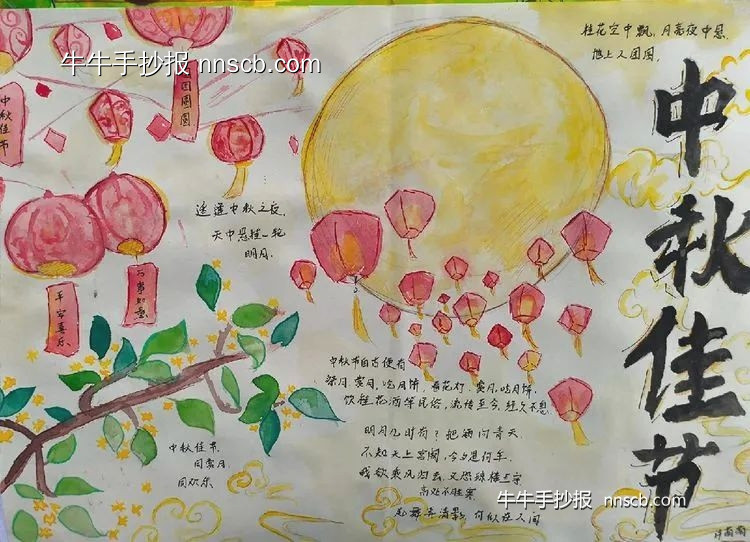 牛牛手抄报 nnscb.com
桂花空中飘,月亮夜中悬
地上人团圆,
中秋佳节
中秋佳节
团圆圆
遥遥中秋之夜,
天中悬挂一轮
明月.
万事如意
平安喜乐
中秋节自古便有
祭月、赏月、吃月饼、看花灯、赏月、吃月饼、
饮桂花酒等民俗,流传至今,经久不息
明月几时有?把酒问青天
不知天上宫阙,今夕是何年.
我欲乘风归去,又恐琼楼玉宇
高处不胜寒
起舞弄清影,何似在人间
中秋佳节
同赏月
同欢乐
牛牛手抄报 nnscb.com